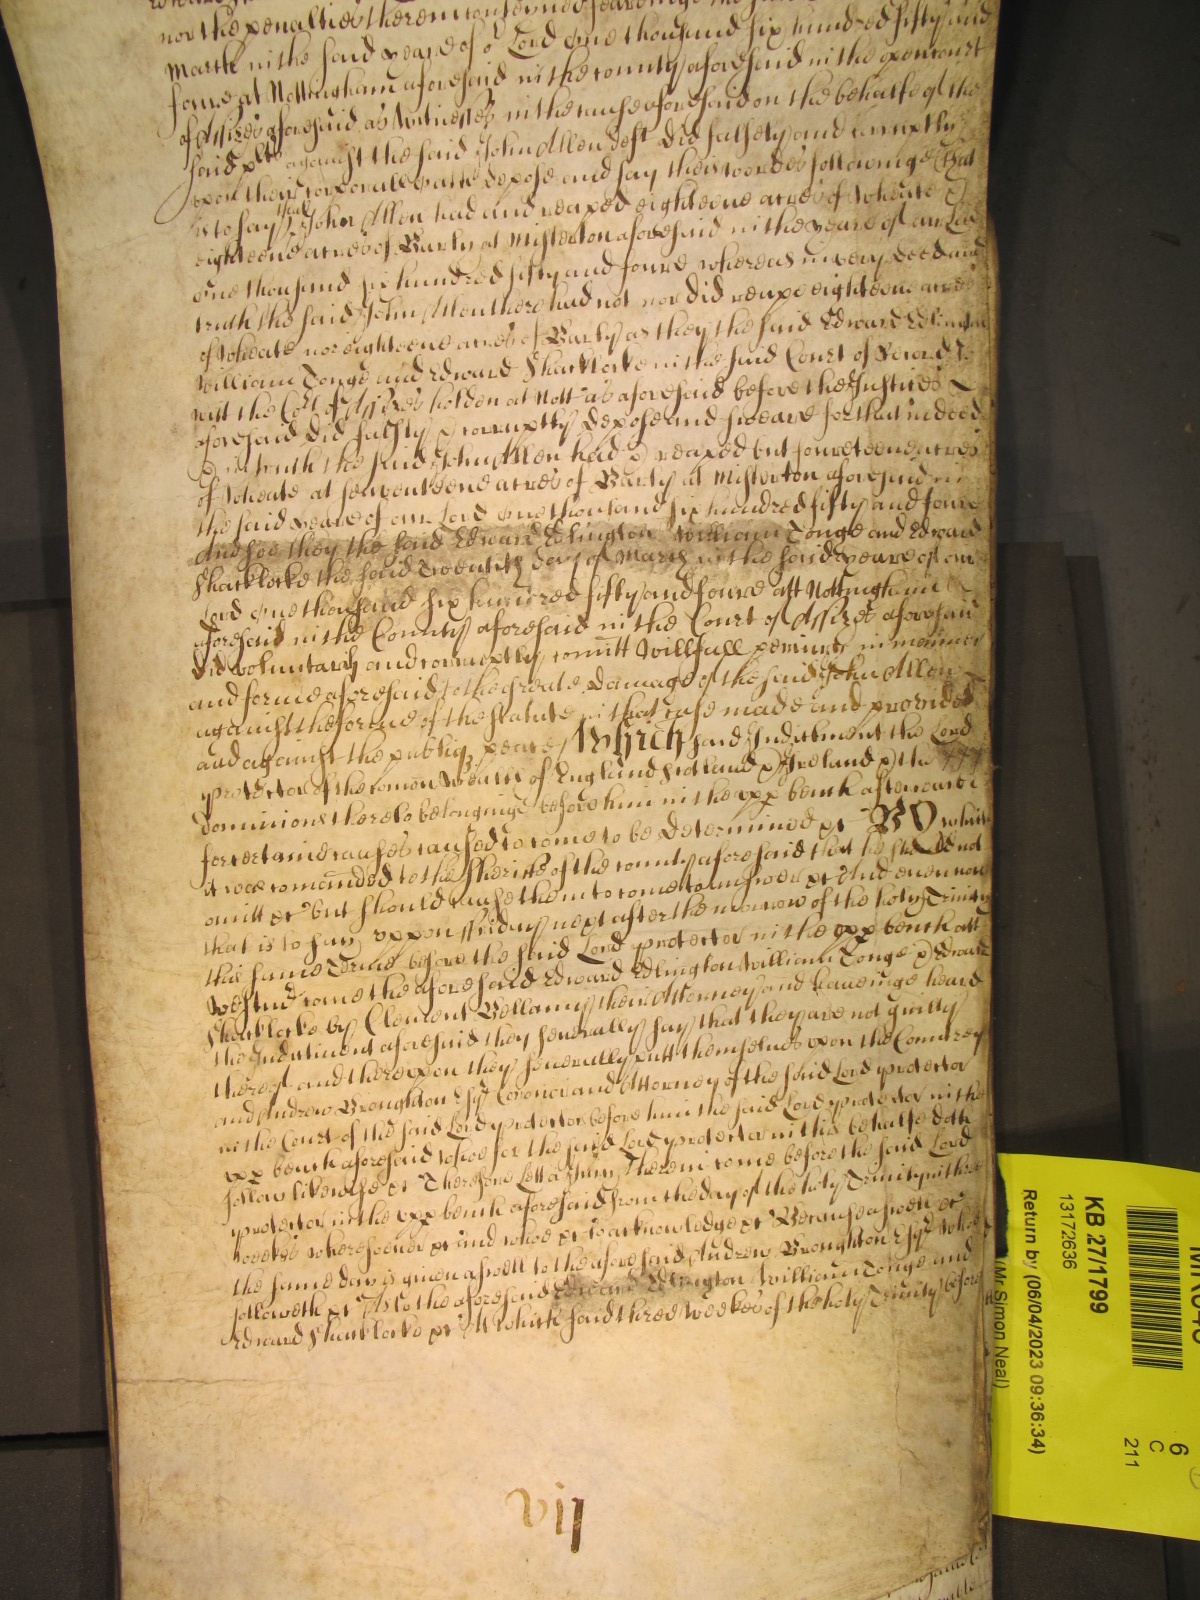 nor the penalties therein conteyned feareinge the
March in the said yeare of or Lord one thousand six hundred fifty and
foure at Nottingham aforesaid in the county aforesaid in the open court
of Assizes aforesaid as witnesses in the cause aforesaid on the behalfe of the
said plts against the said John Allen deft did falsely and corruptly
upon their corporall oathe depose and say theis wordes followinge That
is to say that John Allen had and reaped eighteene acres of wheate &
eighteene acres of Barly at Misterton aforesaid in the yeare of our Lord
one thousand six hundred fifty and foure whereas in very deed and
truth the said John Allen there had not nor did reape eighteene acres
of wheate nor eighteene acres of Barly as they the said Edward Edlington
William Tonge and Edward Sharklocke in the said Court of Record to
witt the Cort of Assizes holden at Nott as aforesaid before the Justices
aforesaid did falsly & corruptly depose and sweare for that indeed
& in truth the said John Allen had & reaped but foureteene acres
of wheate at seaventeene acres of Barly at Misterton aforesaid in
the said yeare of our Lord one thousand six hundred fifty and foure
And soe they the said Edward Edlington William Tonge and Edward
Sharklocke the said Twentith day of March in the said yeare of our
Lord one thousand six hundred fifty and foure att Nottingham
aforesaid in the County aforesaid in the Court of Assizes aforesaid
did voluntarily and corruptly comitt willfull periury in manner
and forme aforesaid to the greate damage of the said John Allen
against the forme of the statute in that case made and provided
and against the publiq peace Which said Indictment the Lord
Protector of the comon wealth of England Scotland & Ireland & the
dominions thereto belonginge before him in the upp bench afterwards
for certaine causes caused to come to be determined &c Wherefore
it was comanded to the Sheriffe of the county aforesaid that he should not
omitt &c but should cause them to come to answer &c And even now
that is to say uppon ffriday next after the morrow of the holy Trinity
this same Terme before the said Lord Protector in the upp bench att
Westmr come the aforesaid Edward Edlington William Tonge & Edward
Sharklocke by Clement Bellamy their Attorney and haveinge heard
the Indictment aforesaid they severally say that they are not guilty
thereof and thereupon they severally putt themselves upon the Countrey
and Andrew Broughton Esqr Coronor and Attorney of the said Lord Protector
in the Court of the said Lord Protector before him the said Lord Protector in the
upp bench aforesaid whoe for the said Lord Protector in this behalfe doth
follow likewise &c Therefore lett a Jury therein come before the said Lord
Protector in the upp bench aforesaid from the day of the holy Trinity in three
weekes wheresoever &c and whoe &c to acknowledge &c Because aswell &c
the same day is given aswell to the aforesaid Andrew Broughton Esqr whoe
followeth &c As to the aforesaid Edward Edlington William Tonge and
Edward Sharklocke &c Att which said three weekes of the holy Trinity before
vij
KB 27/1799
13172636
Return by (06/04/2023 09:36:34)
(Mr Simon Neal)
6
C
211